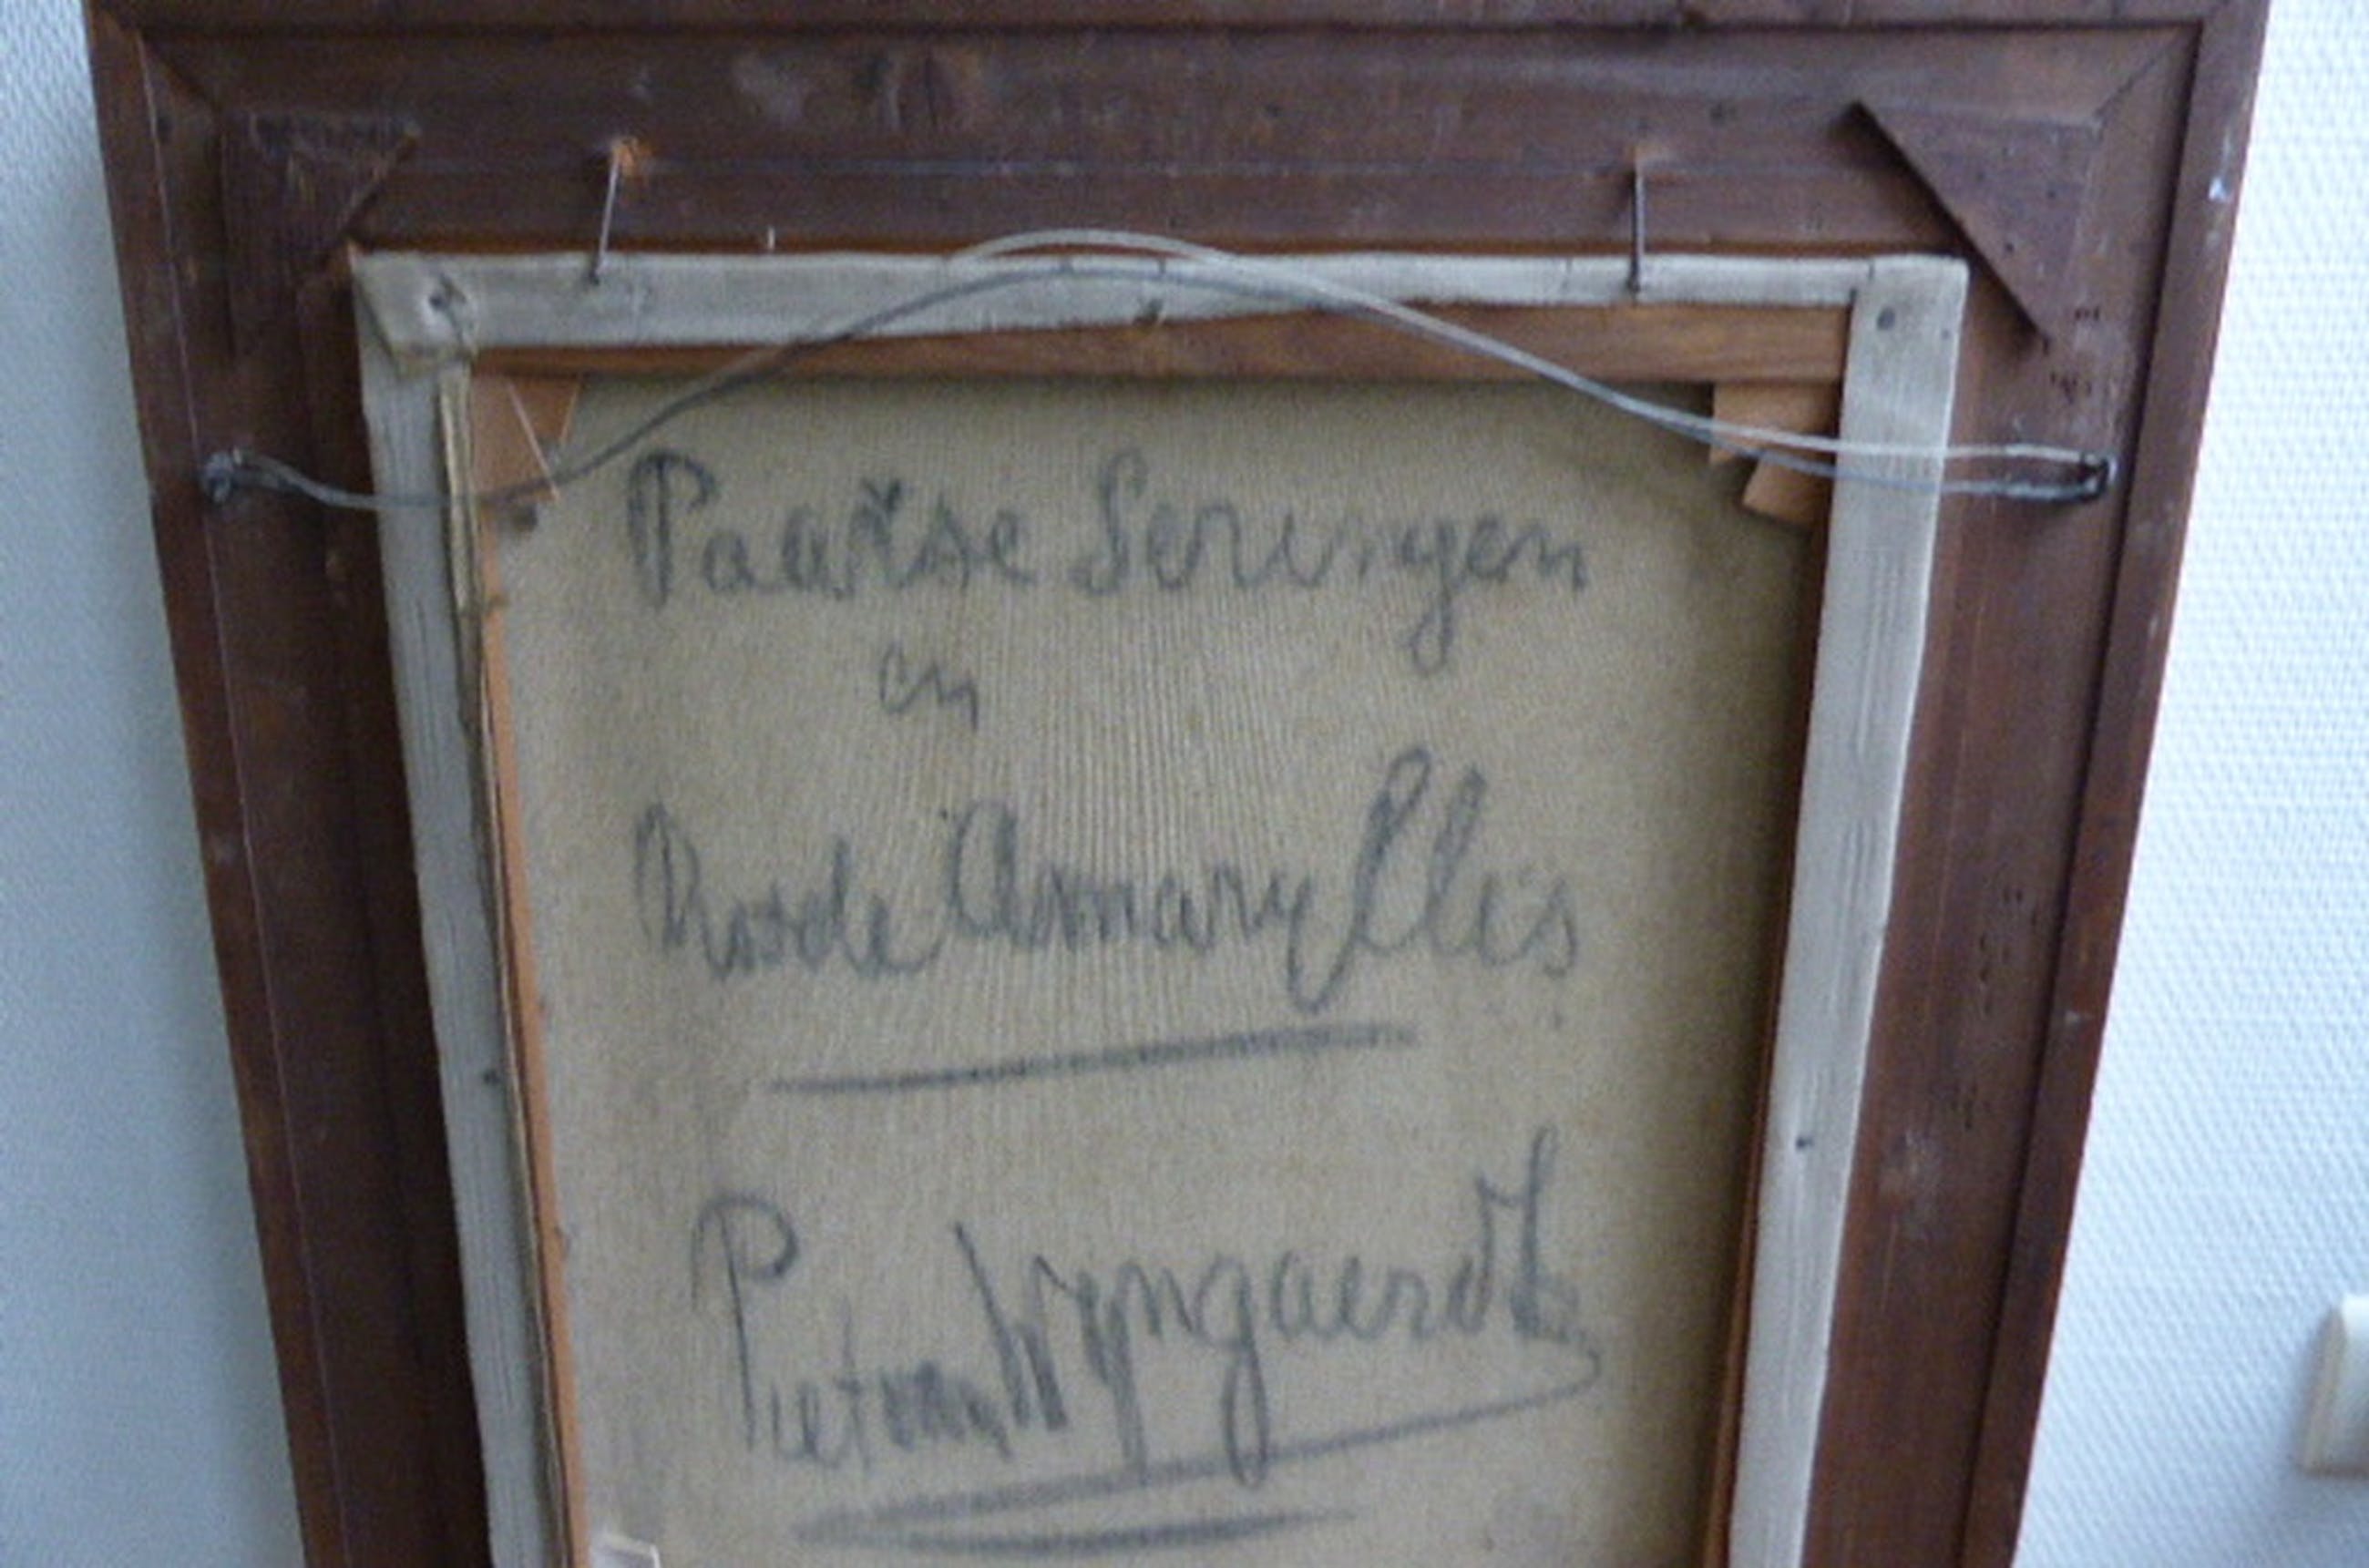 Paarse Seringen
en
Rosde Amaryllis
Piet van Wijngaerdt